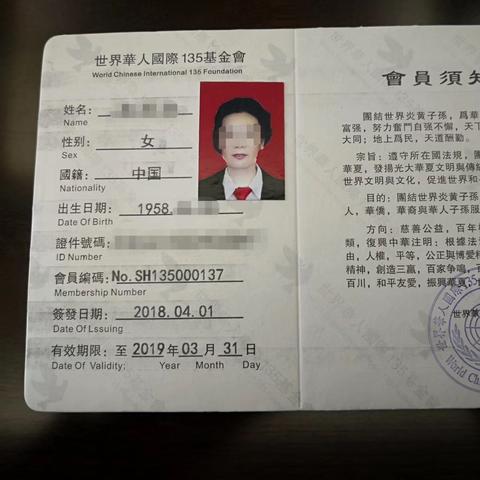 世界華人國際135基金會
World Chinese International 135 Foundation
姓名:
Name
性别: 女
Sex
國籍: 中国
Nationality
出生日期: 1958.
Date Of Birth
證件號碼:
ID Number
會員编碼: No.SH135000137
Membership Number
簽發日期: 2018.04.01
Date Of Lssuing
有效期限: 至 2019 年 03 月 31 日
Date Of Validity: Year Month Day
會員須知
團結世界炎黃子孫，爲華
富强，努力奮鬥自强不懈，天下
大同；地上爲民，天道酬勤。
宗旨：遵守所在國法規，團
華夏，發揚光大華夏文明與傳統
世界文明與文化，促進世界和
目的：團結世界炎黃子孫
人，華僑，華裔與華人子孫服
方向：慈善公益，百年樹
類，復興中華注明：根據法
由，人權，平等，公正與博愛
精神，創造三贏，百家争鳴，百
百川，和平友愛，振興華夏，
世界華
世界華人國際
World Ch